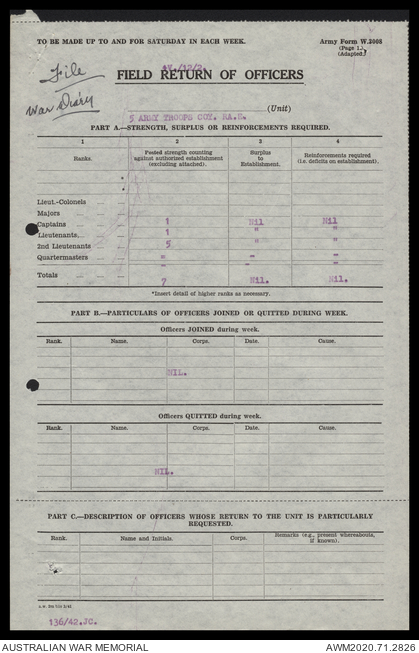 TO BE MADE UP TO AND FOR SATURDAY IN EACH WEEK.
Army Form W.3008
(Page 1.)
(Adapted.)
File
War Diary
FIELD RETURN OF OFFICERS
5 ARMY TROOPS COY. RA.E. (Unit)
PART A.—STRENGTH, SURPLUS OR REINFORCEMENTS REQUIRED.
1 2 3 4
Ranks. Posted strength counting against authorized establishment (excluding attached). Surplus to Establishment. Reinforcements required (i.e. deficits on establishment).
Lieut.-Colonels
Majors
Captains 1 Nil Nil
Lieutenants 1 " "
2nd Lieutenants 5 " "
Quartermasters - - -
Totals 7 Nil. Nil.
*Insert detail of higher ranks as necessary.
PART B.—PARTICULARS OF OFFICERS JOINED OR QUITTED DURING WEEK.
Officers JOINED during week.
Rank. Name. Corps. Date. Cause.
NIL.
Officers QUITTED during week.
Rank. Name. Corps. Date. Cause.
NIL.
PART C.—DESCRIPTION OF OFFICERS WHOSE RETURN TO THE UNIT IS PARTICULARLY
REQUESTED.
Rank. Name and Initials. Corps. Remarks (e.g., present whereabouts, if known).
136/42.JC.
AUSTRALIAN WAR MEMORIAL AWM2020.71.2826